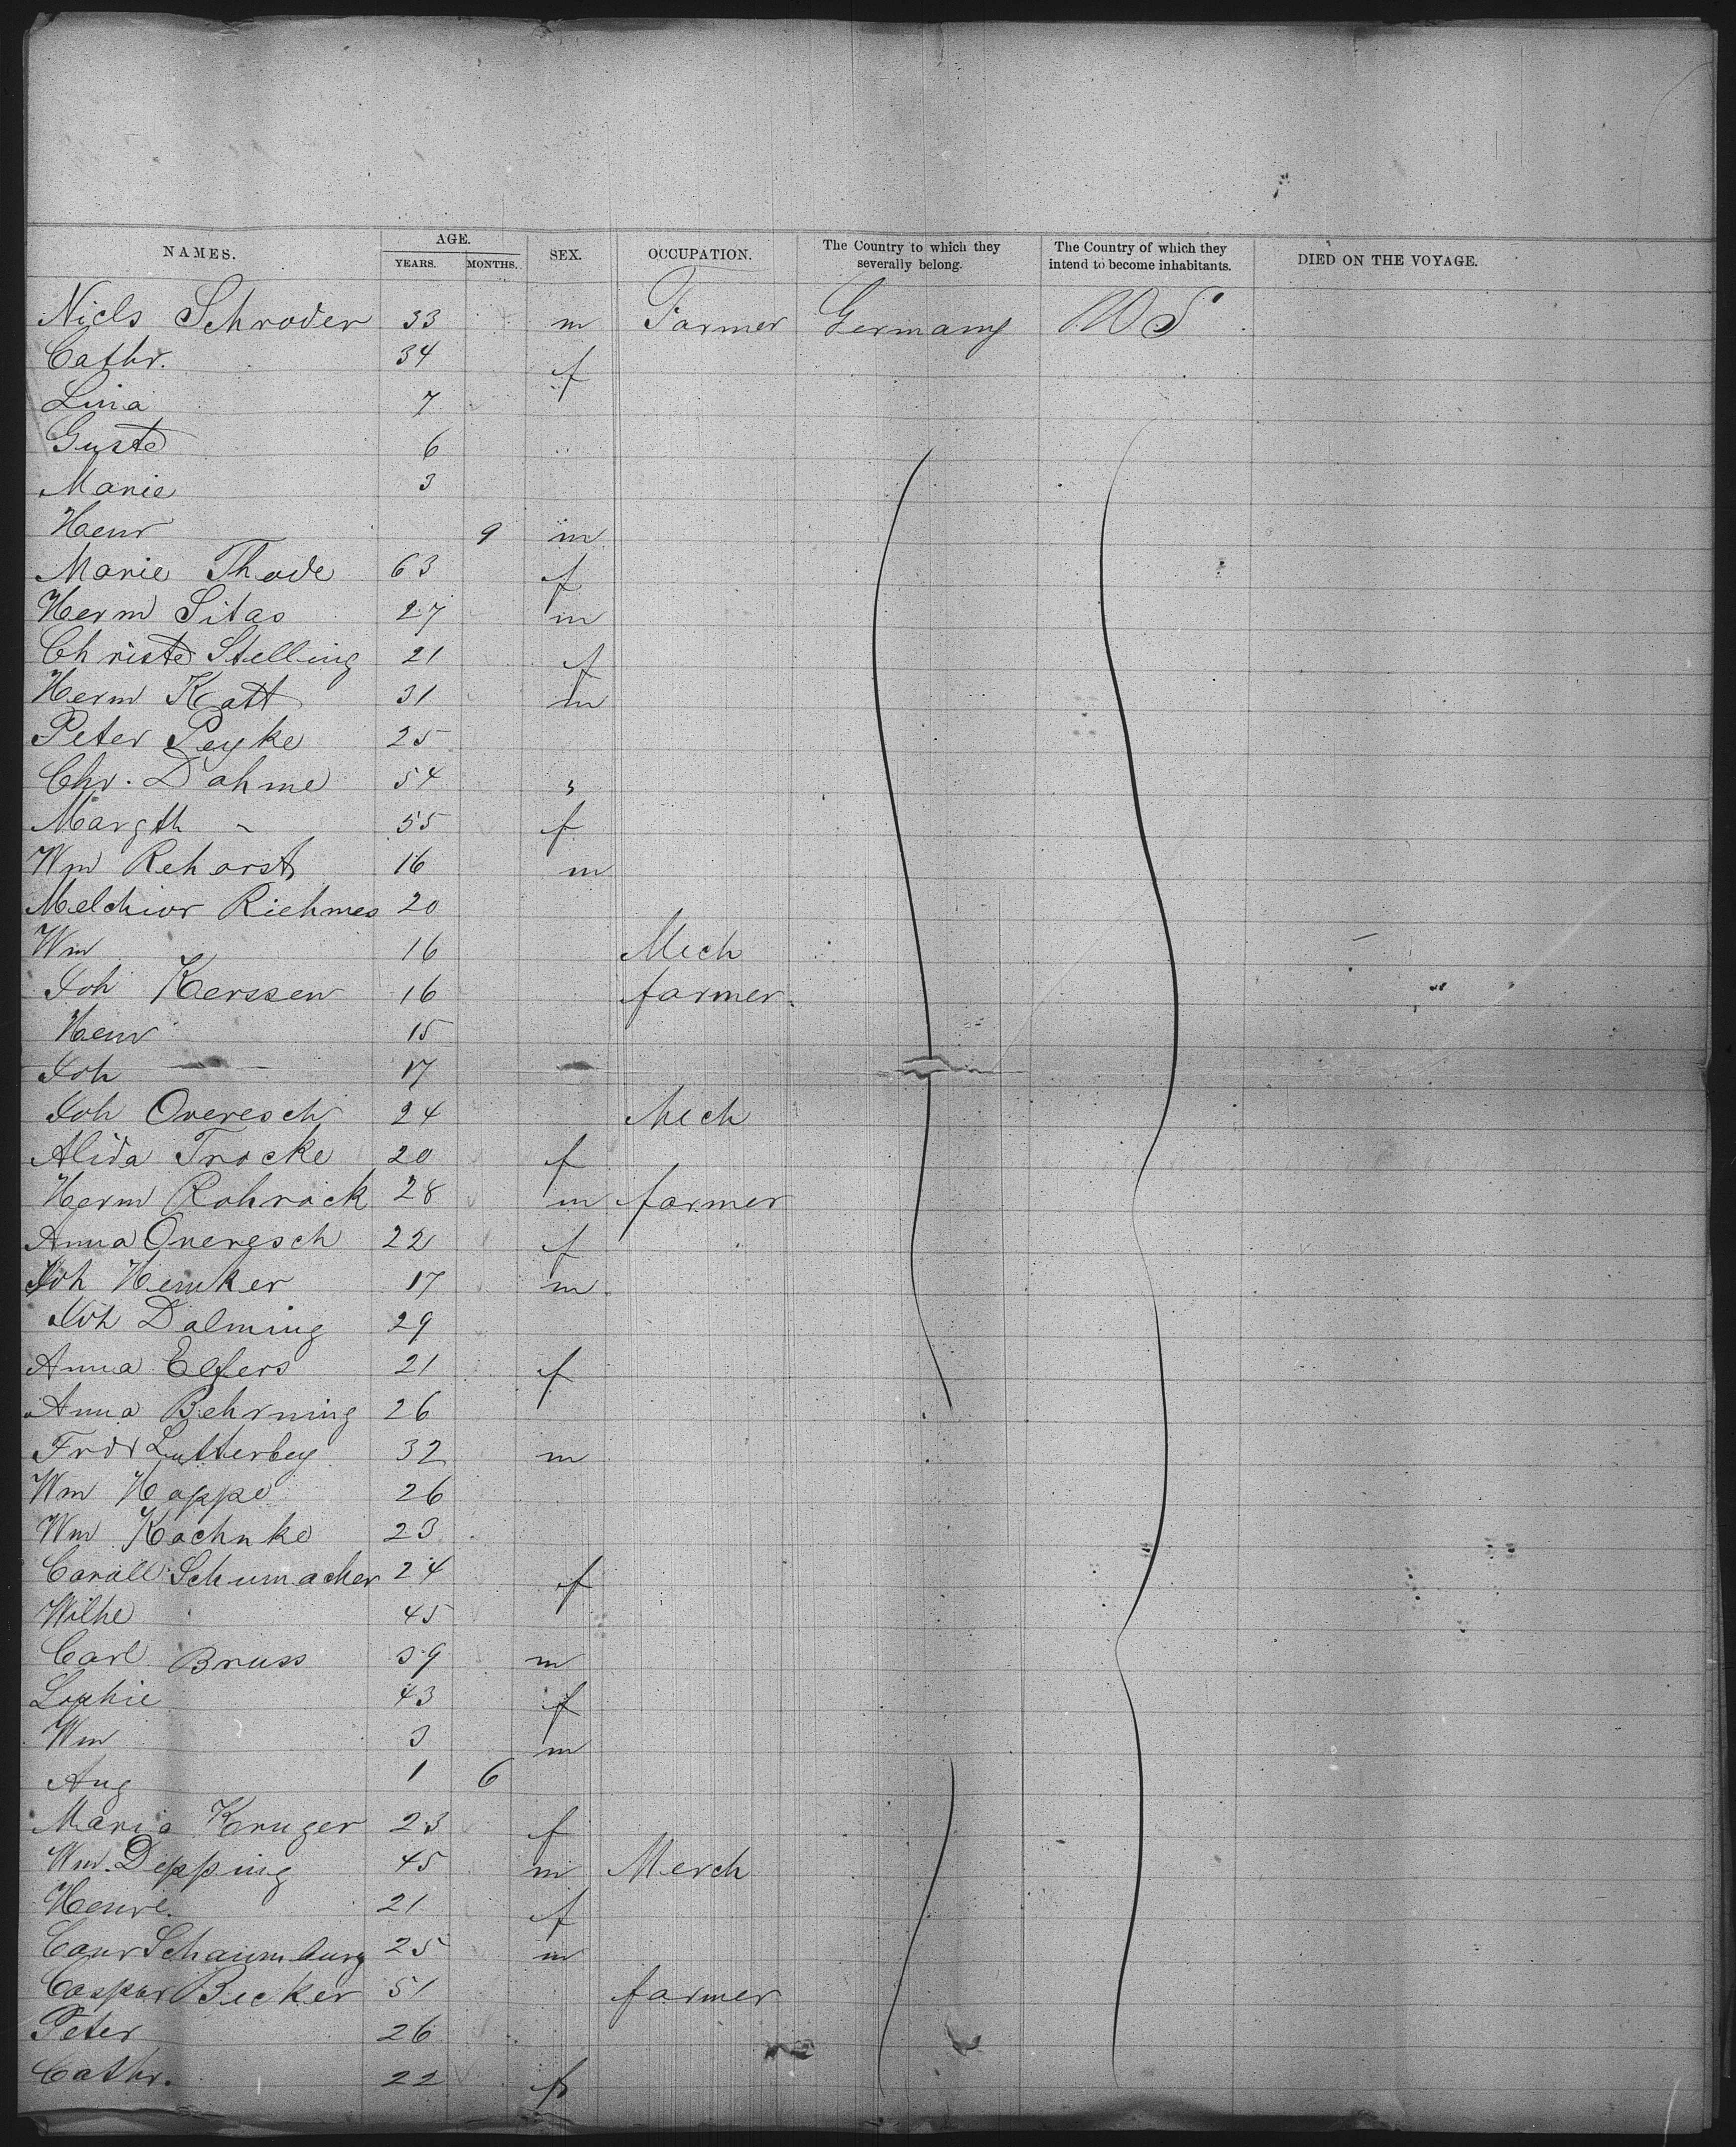 NAMES. AGE. YEARS. MONTHS. SEX. OCCUPATION. The Country to which they severally belong. The Country of which they intend to become inhabitants. DIED ON THE VOYAGE.
Niels Schroder 33 m Farmer Germany US
Cathr. 34 f
Lina 7 "
Guste 6 "
Marie 3
Henr 9 m
Marie Thode 63 f
Herm Sitas 27 m
Christe Stelling 21 f
Herm Katt 31 m
Peter Peyke 25
Chr. Dahme 54 "
Margth " 55 f
Wm Rehorst 16 m
Melchior Riehmes 20
Wm 16 Mech
Joh Kerssen 16 farmer.
Henr 15
Joh 17
Joh Overesch 24 Mech
Alida Trocke 20 f
Herm Rohrock 28 m farmer
Anna Overesch 22 f
Joh Hemker 17 m
Joh Dalming 29
Anna Elfers 21 f
Anna Behrning 26
Frdr Lutterbey 32 m
Wm Hoppe 26
Wm Kochnke 23
Schumacher 24 f
Wilhe 45
Carl Bruss 39 m
Sophie 43 f
Wm 3 m
Aug 1 6
Maria Kruger 23 f
Wm. Depping 45 m Merch
Henre. 21 f
Conr Schaumburg 25 m
Caspar Becker 51 farmer
Peter 26
Cathr. 22 f